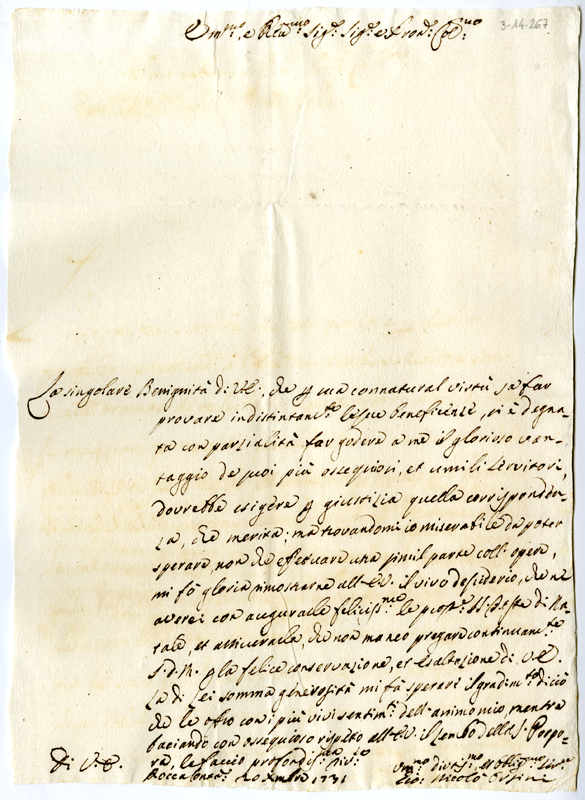 3-14-267
Em.mo, e Rev.mo Sig.r Sig.r e Pron. Col.mo
La singolare Benignità di V.E., che p sua connatural virtù sa far
provare indistintam.te le sue beneficenze, si è degna-
ta con parzialità far godere a me il glorioso van-
taggio de suoi più ossequiosi, et umili servitori,
dovrebbe esigere p giustizia quella corrisponden-
za, che merita; ma trovandomi io miserabile da poter
sperare non che effettuare una simil parte coll'opere,
mi fò gloria rimostrarne all'E.V. il vivo desiderio, che ne
averei con augurarle felicis.me le pros.e SS. Feste di Na-
tale, et assicurarla, che non manco pregare continuam.te
S.D.M. p la felice conservazione, et esaltazione di V.E.
La di lei somma generosità mi fà sperare il gradim.to di ciò
che le offro con i più vivi sentim.ti dell'animo mio mentre
baciando con ossequioso rispetto all'E.V. il lembo della S. Porpo-
ra, le faccio profondis.ma riv.za
Di V.E.
Rocca 20 Xmbre 1731
Um.mo Div.mo et Oblig.mo Ser.re
Nicolò Orsini